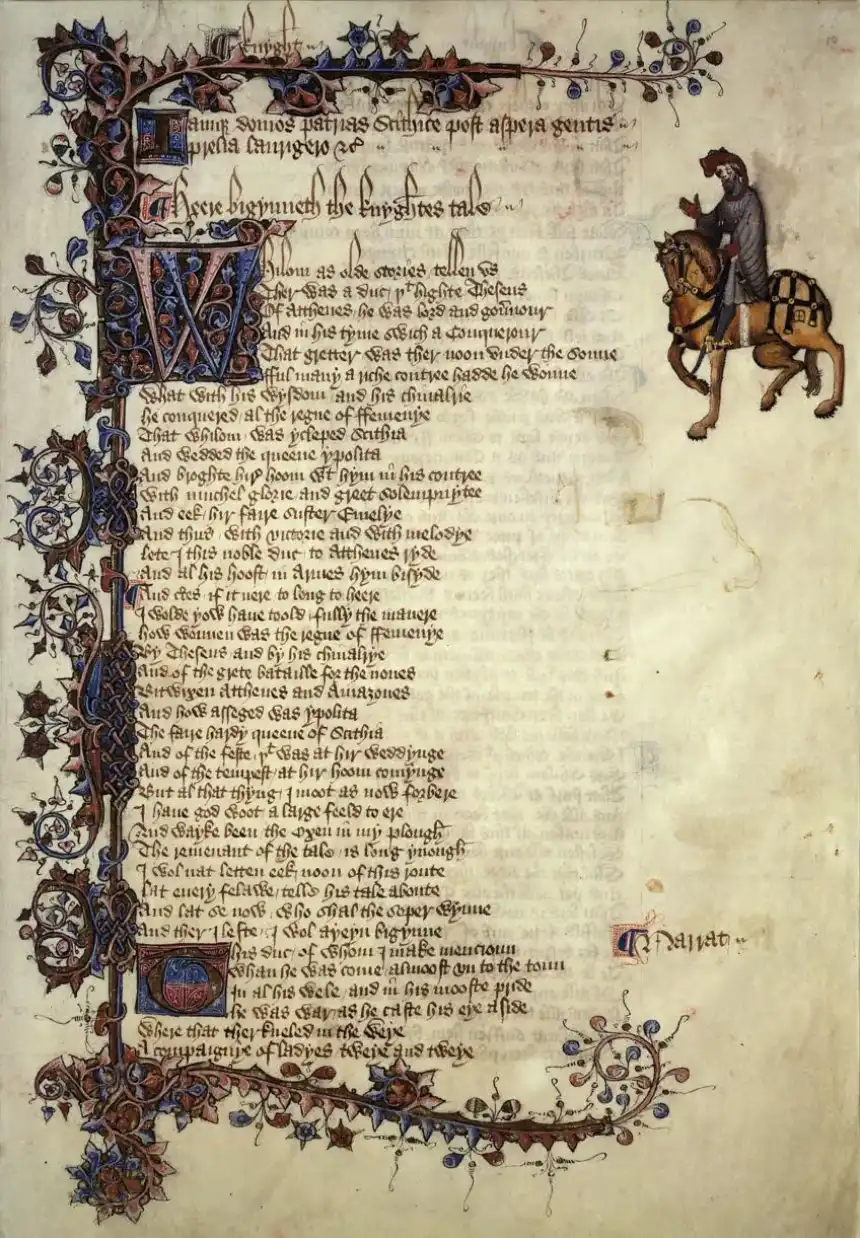 ¶ Knyght
Iamque domos patrias Scithice post aspera gentis
prelia laurigero &c
¶ Heere bigynneth the knyghtes tale
Whilom as olde stories tellen vs
Ther was a duc þͭ highte Theseus
Of Atthenes he was lord and gouͬnour
And in his tyme swich a Conquerour
That gretter was ther noon vnder the sonne
fful many a riche contree hadde he wonne
What with his wysdom and his chiualrie
he conquered al the regne of ffemenye
That whilom was ycleped Scithia
And wedded the queene ypolita
And broghte hirͤ hoom wͭ hym in his contree
With muchel glorie and greet solempnytee
And eek hir faire suster Emelye
And thus with victorie and with melodye
lete I this noble duc to Atthenes ryde
And al his hoost in Armes hym bisyde
¶ And certes if it nere to long to heere
I wolde yow haue toold fully the manere
how wonnen was the regne of ffemenye
By Theseus and by his chiualrye
And of the grete bataille for the nones
Bitwixen Atthenes and Amazones
And how asseged was ypolita
The faire hardy queene of Scithia
And of the feste þͭ was at hir weddynge
And of the tempest at hir hoom comynge
But al that thyng I moot as now forbere
I haue god woot a large feeld to ere
And wayke been the Oxen in my plough
The remenant of the tale is long ynough
I wol nat letten eek noon of this route
lat euery felawe telle his tale aboute
And lat se now who shal the soper wynne
And ther I lefte I wol ayeyn bigynne
This duc of whom I make mencioun
¶ Narrat
Whan he was come almoost vn to the toun
In al his wele and in his mooste pride
he was war as he caste his eye aside
Where that ther kneled in the weye
A compaignye of ladyes tweye and tweye